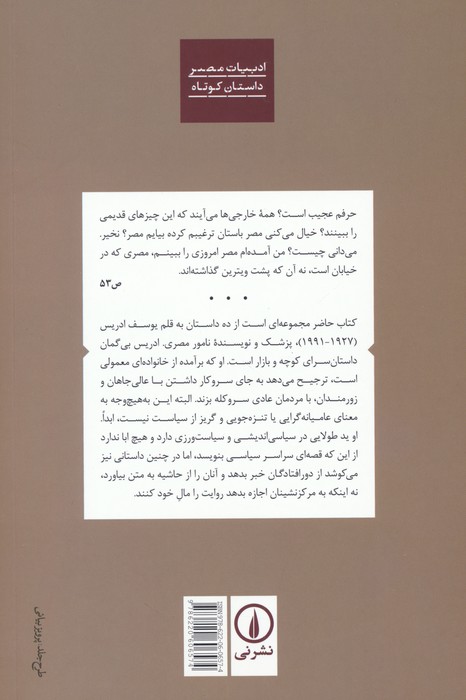 ادبیات مصر
داستان کوتاه
حرفم عجیب است؟ همهٔ خارجی‌ها می‌آیند که این چیزهای قدیمی
را ببینند؟ خیال می‌کنی مصر باستان ترغیبم کرده بیایم مصر؟ نخیر.
می‌دانی چیست؟ من آمده‌ام مصر امروزی را ببینم، مصری که در
خیابان است، نه آن که پشت ویترین گذاشته‌اند.
ص۵۳
• • •
کتاب حاضر مجموعه‌ای است از ده داستان به قلم یوسف ادریس
(۱۹۲۷-۱۹۹۱)، پزشک و نویسندهٔ نامور مصری. ادریس بی‌گمان
داستان‌سرای کوچه و بازار است. او که برآمده از خانواده‌ای معمولی
است، ترجیح می‌دهد به جای سروکار داشتن با عالی‌جاهان و
زورمندان، با مردمان عادی سروکله بزند. البته این به‌هیچ‌وجه به
معنای عامیانه‌گرایی یا تنزه‌جویی و گریز از سیاست نیست، ابداً.
او ید طولایی در سیاسی‌اندیشی و سیاست‌ورزی دارد و هیچ ابا ندارد
از این که قصه‌ای سراسر سیاسی بنویسد، اما در چنین داستانی نیز
می‌کوشد از دورافتادگان خبر بدهد و آنان را از حاشیه به متن بیاورد،
نه اینکه به مرکزنشینان اجازه بدهد روایت را مالِ خود کنند.
طرح جلد: پرویز بیانی
ISBN 978-622-06-0657-4
9786220606574
نشرنی